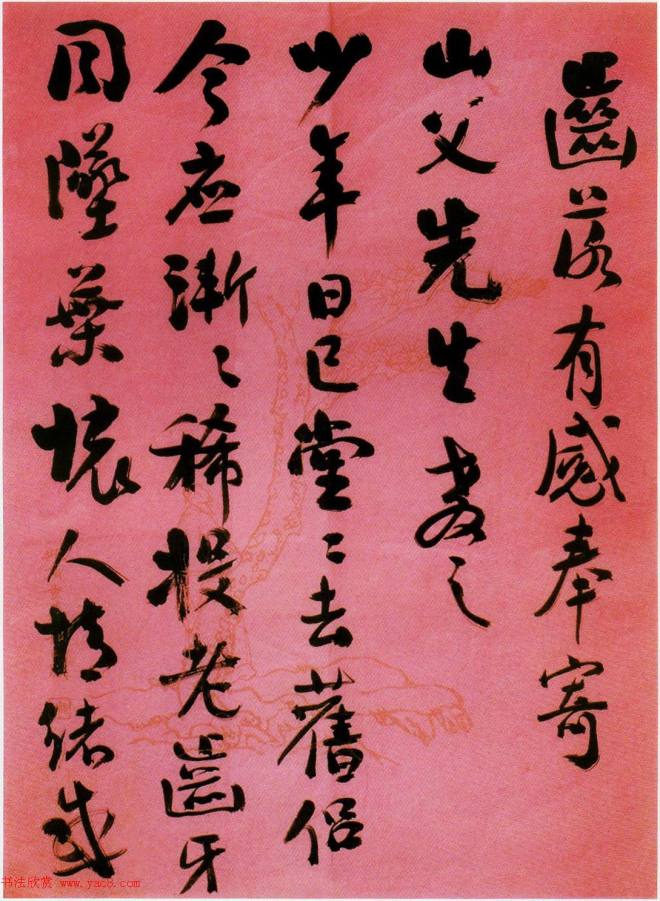 齒落有感奉寄
山父先生教之
少年日已堂〻去舊侶
今应漸〻稀投老齒牙
同墜葉懷人情緒或
书法欣赏 www.yac8.com